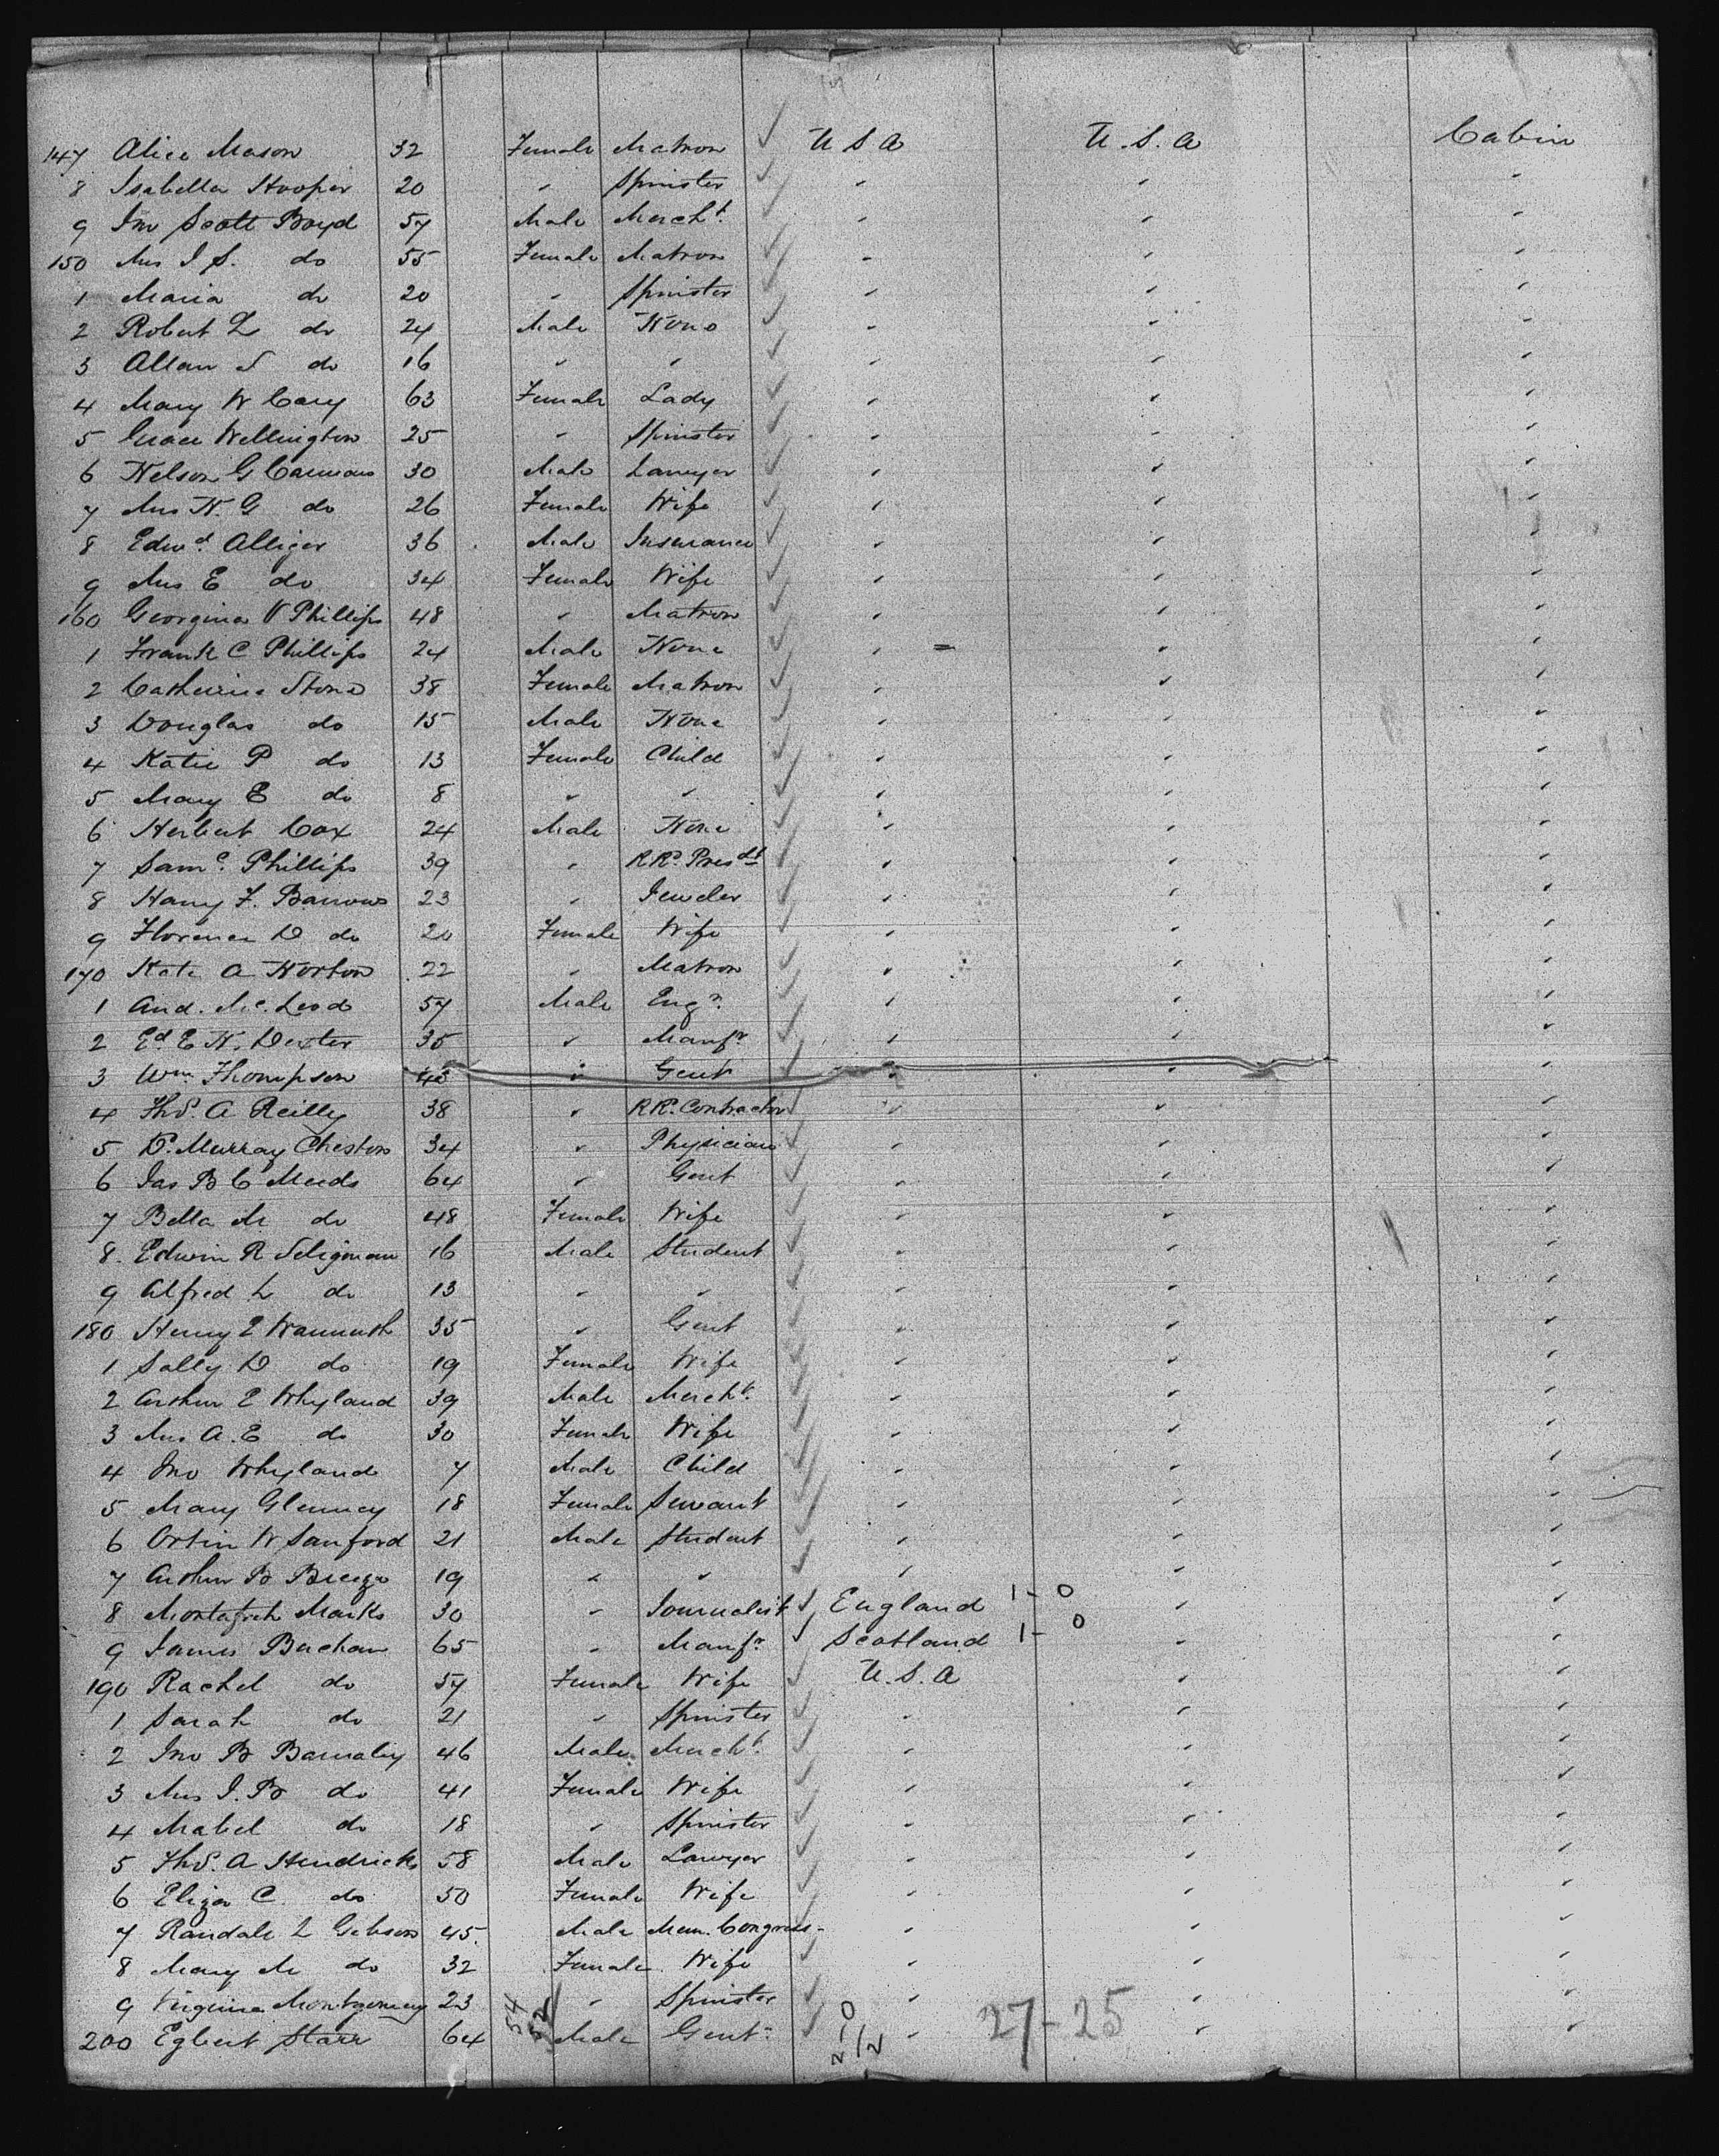 147 Alice Mason 32 Female Matron ✓ U S A U. S. A Cabin
8 Isabella Hooper 20 " Spinster ✓ " " "
9 Jno Scott Boyd 57 Male Mercht. ✓ " " "
150 Mrs J S. do 55 Female Matron ✓ " " "
1 Maria do 20 " Spinster ✓ " " "
2 Robert L do 24 Male None ✓ " " "
3 Allan S do 16 " " ✓ " " "
4 Mary W Cary 63 Female Lady ✓ " " "
5 Grace Wellington 25 " Spinster ✓ " " "
6 Nelson G Carman 30 Male Lawyer ✓ " " "
7 Mrs N. G do 26 Female Wife ✓ " " "
8 Edwd. Alliger 36 Male Insurance ✓ " " "
9 Mrs E do 34 Female Wife ✓ " " "
160 Georgina V Phillips 48 " Matron ✓ " " "
1 Frank C Phillips 24 Male None ✓ " = " "
2 Catherine Stone 38 Female Matron ✓ " " "
3 Douglas do 15 Male None ✓ " " "
4 Katie P do 13 Female Child ✓ " " "
5 Mary E do 8 " " ✓ " " "
6 Herbert Cox 24 Male None ✓ " " "
7 Saml. Phillips 39 " RR. Presdt ✓ " " "
8 Harry F. Barrows 23 " Jeweler ✓ " " "
9 Florence D do 20 Female Wife ✓ " " "
170 Kate A Norton 22 " Matron ✓ " " "
1 And. Mc. Leod 57 Male Engr. ✓ " " "
2 Ed. E N. Dexter 35 " Manfr. ✓ " " "
3 Wm. Thompson 43 " Gent ✓ " " "
4 Ths. A Reilly 38 " RR. Contractor ✓ " " "
5 D. Murray Cheston 34 " Physician ✓ " " "
6 Jas B C Meeds 64 " Gent ✓ " " "
7 Bella M do 48 Female Wife ✓ " " "
8. Edwin R Seligman 16 Male Student ✓ " " "
9 Alfred L do 13 " " ✓ " " "
180 Henry E Warmuth 35 " Gent ✓ " " "
1 Sally D do 19 Female Wife ✓ " " "
2 Arthur E Whyland 39 Male Mercht. ✓ " " "
3 Mrs A. E do 30 Female Wife ✓ " " "
4 Jno Whyland 7 Male Child ✓ " " "
5 Mary Glenney 18 Female Servant ✓ " " "
6 Ortin W Sanford 21 Male Student ✓ " " "
7 Arthur B 19 " " ✓ " " "
8 Marks 30 " Journalist ✓ England 1-0 " "
9 James Buchan 65 " Manfr. ✓ Scotland 1-0 " "
190 Rachel do 57 Female Wife ✓ U. S. A " "
1 Sarah do 21 " Spinster ✓ " " "
2 Jno B Barnaby 46 Male Mercht. ✓ " " "
3 Mrs J. B do 41 Female Wife ✓ " " "
4 Mabel do 18 " Spinster ✓ " " "
5 Ths. A Hendricks 58 Male Lawyer ✓ " " "
6 Eliza C. do 50 Female Wife ✓ " " "
7 Randall L Gibson 45. Male Mem. Congress - " " "
8 Mary M do 32 Female Wife ✓ " " "
9 Virginia Montgomery 23 " Spinster ✓ " " "
200 Egbert Starr 64 Male Gent ✓ " 27-25 " "